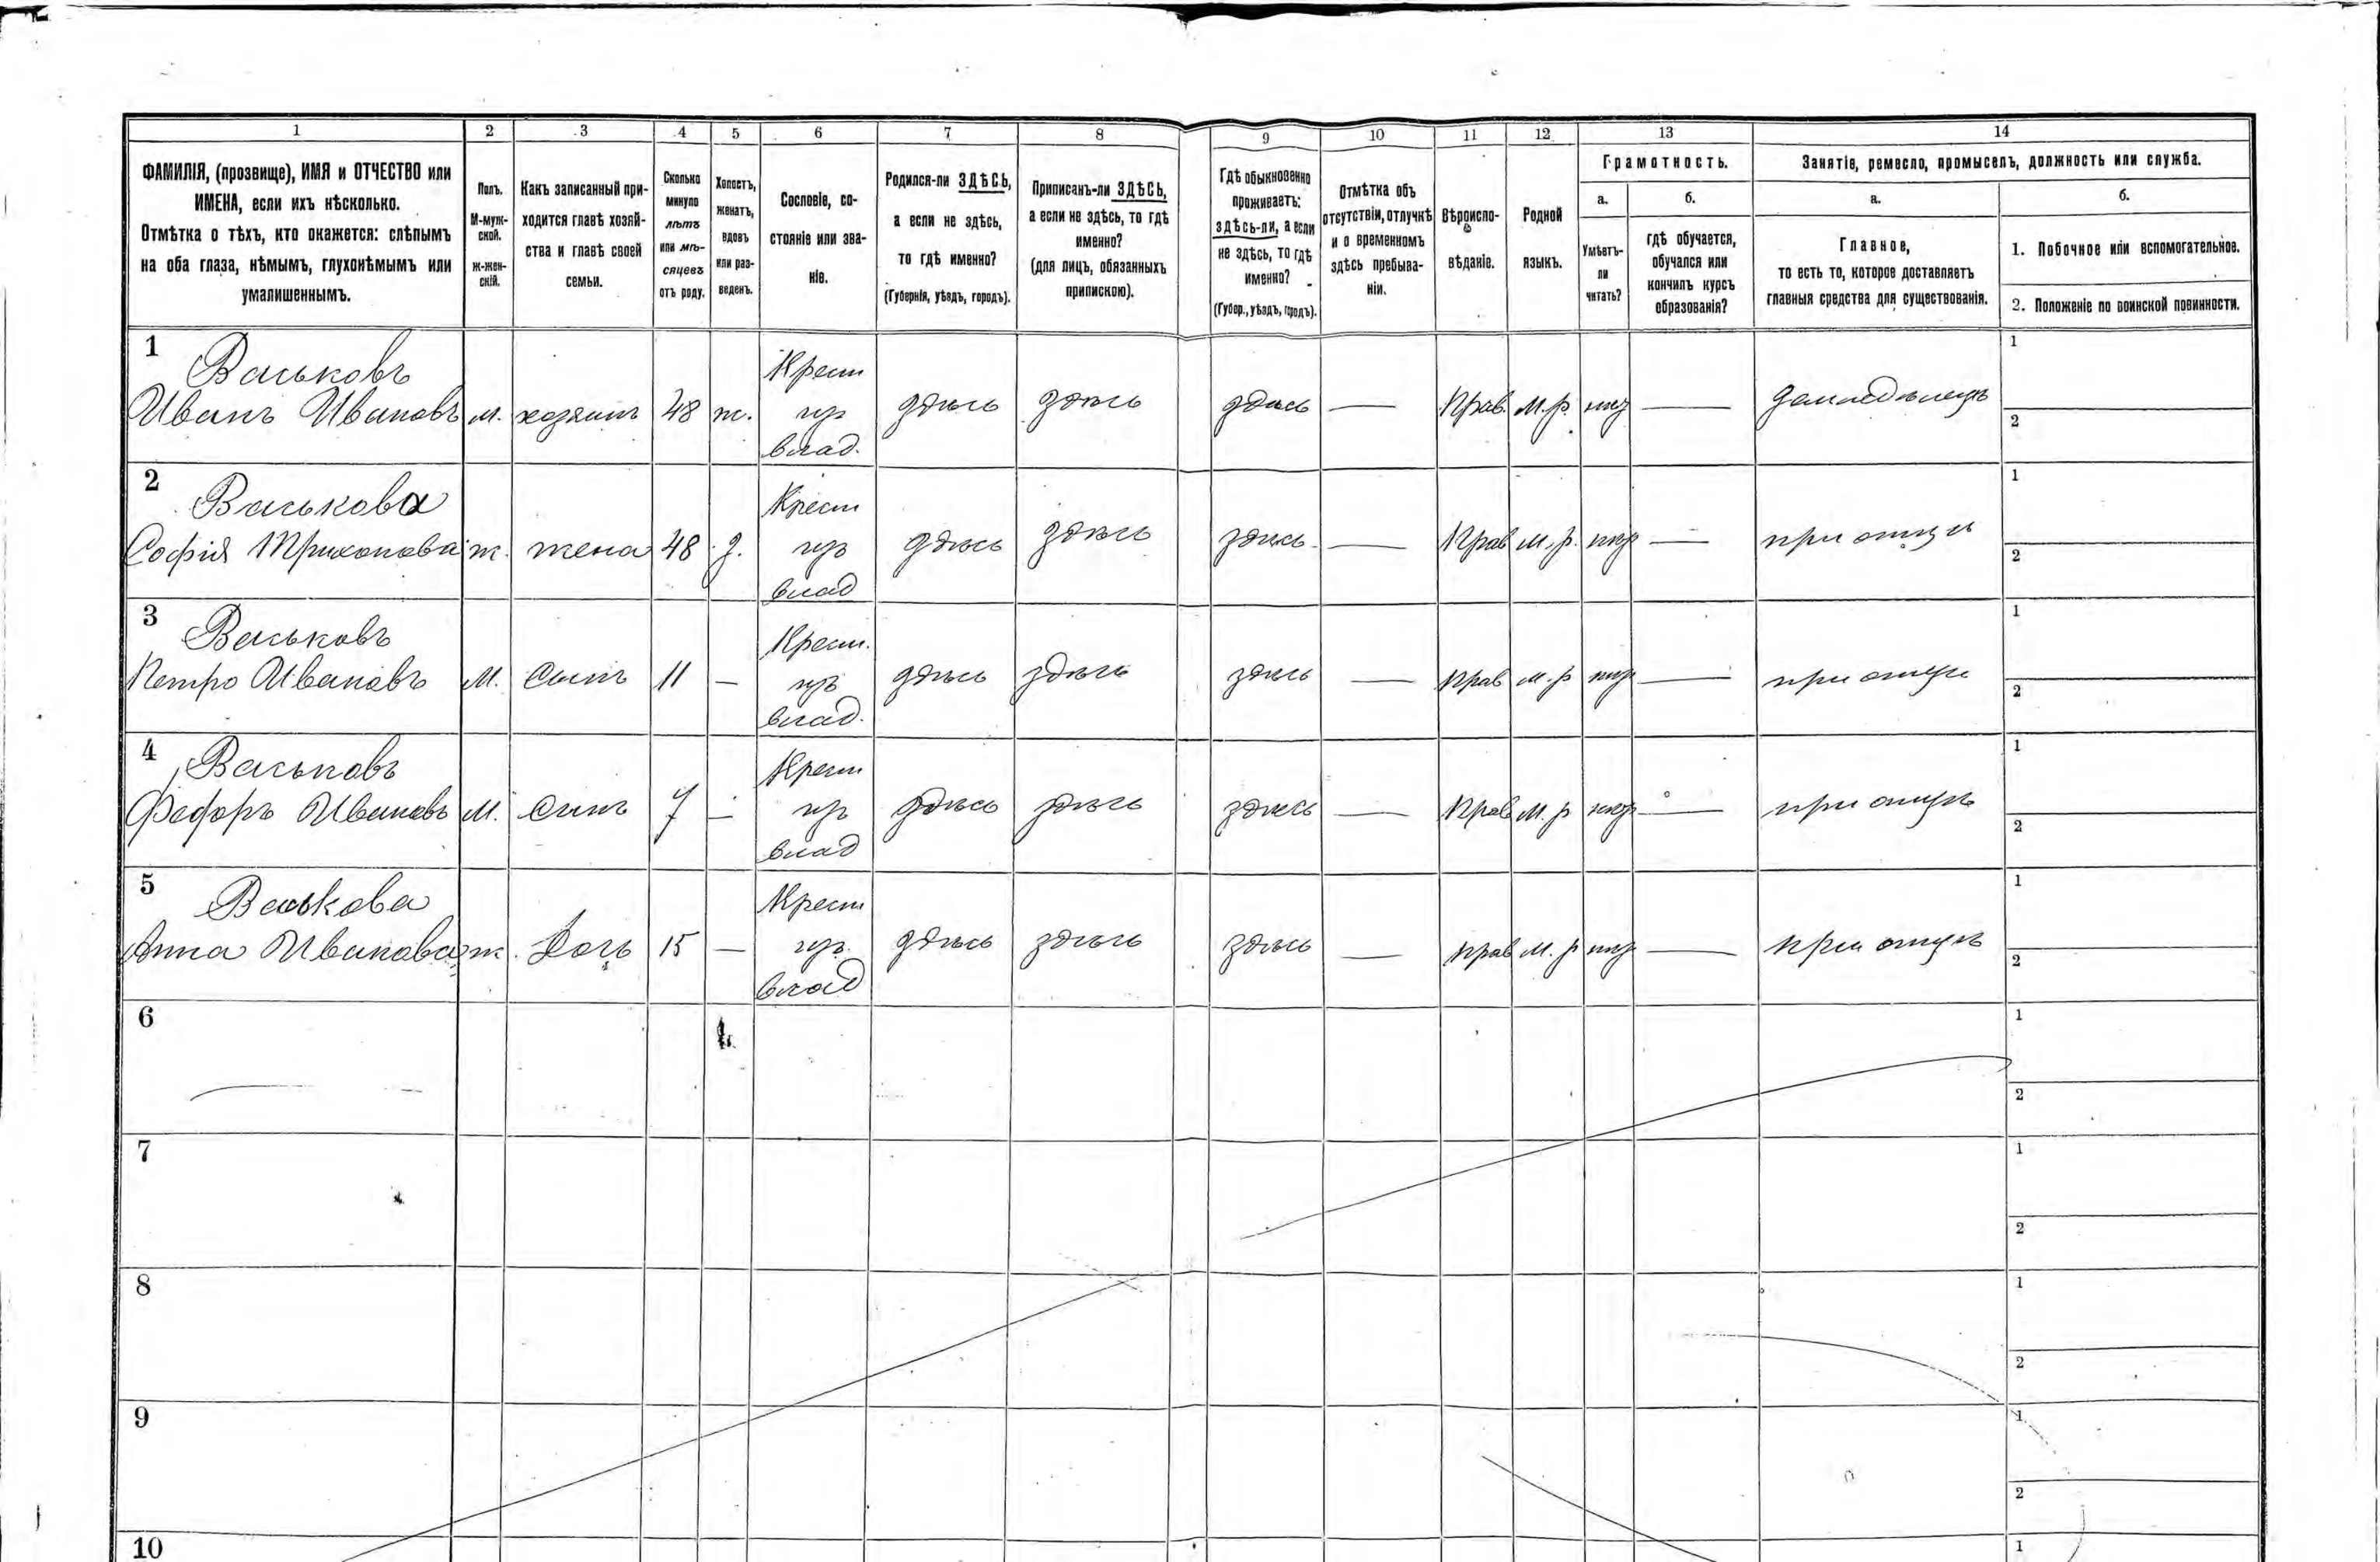 1 2 3 4 5 6 7 8 9 10 11 12 13 14
ФАМИЛІЯ, (прозвище), ИМЯ и ОТЧЕСТВО или
ИМЕНА, если ихъ нѣсколько.
Отмѣтка о тѣхъ, кто окажется: слѣпымъ
на оба глаза, нѣмымъ, глухонѣмымъ или
умалишеннымъ.
Полъ.
М-муж-
ской.
ж-жен-
скій.
Какъ записанный при-
ходится главѣ хозяй-
ства и главѣ своей
семьи.
Сколько
минуло
лѣтъ
или мѣ-
сяцевъ
отъ роду.
Холостъ,
женатъ,
вдовъ
или раз-
веденъ.
Сословіе, со-
стояніе или зва-
ніе.
Родился-ли ЗДѢСЬ,
а если не здѣсь,
то гдѣ именно?
(Губернія, уѣздъ, городъ).
Приписанъ-ли ЗДѢСЬ,
а если не здѣсь, то гдѣ
именно?
(для лицъ, обязанныхъ
припискою).
Гдѣ обыкновенно
проживаетъ:
здѣсь-ли, а если
не здѣсь, то гдѣ
именно?
(Губер., уѣздъ, городъ).
Отмѣтка объ
отсутствіи, отлучкѣ
и о временномъ
здѣсь пребыва-
ніи.
Вѣроиспо-
вѣданіе.
Родной
языкъ.
Грамотность.
а.
Умѣетъ-
ли
читать?
б.
гдѣ обучается,
обучался или
кончилъ курсъ
образованія?
Занятіе, ремесло, промыселъ, должность или служба.
а.
Главное,
то есть то, которое доставляетъ
главныя средства для существованія.
б.
1. Побочное или вспомогательное.
2. Положеніе по воинской повинности.
1
Васьковъ
Иванъ Ивановъ м. хозяинъ 48 ж. Крест из влад. здѣсь здѣсь здѣсь — Прав. м.р. нѣт — земледѣлецъ
1
2
2
Васькова
Софія Трихонова ж. жена 48 з. Крест из влад здѣсь здѣсь здѣсь — Прав м.р. нѣт — при отцѣ
1
2
3
Васьковъ
Петро Ивановъ М. Сынъ 11 — Крест. из влад. здѣсь здѣсь здѣсь — Прав м.р нѣт — при отцѣ
1
2
4
Васьковъ
Федоръ Ивановъ М. Сынъ 7 — Крест из влад здѣсь здѣсь здѣсь — Прав м.р нѣт — при отцѣ
1
2
5
Васькова
Анна Иванова ж. Доць 15 — Крест из влад здѣсь здѣсь здѣсь — Прав м.р нѣт — при отцѣ
1
2
6
1
2
7
1
2
8
1
2
9
1
2
10
1